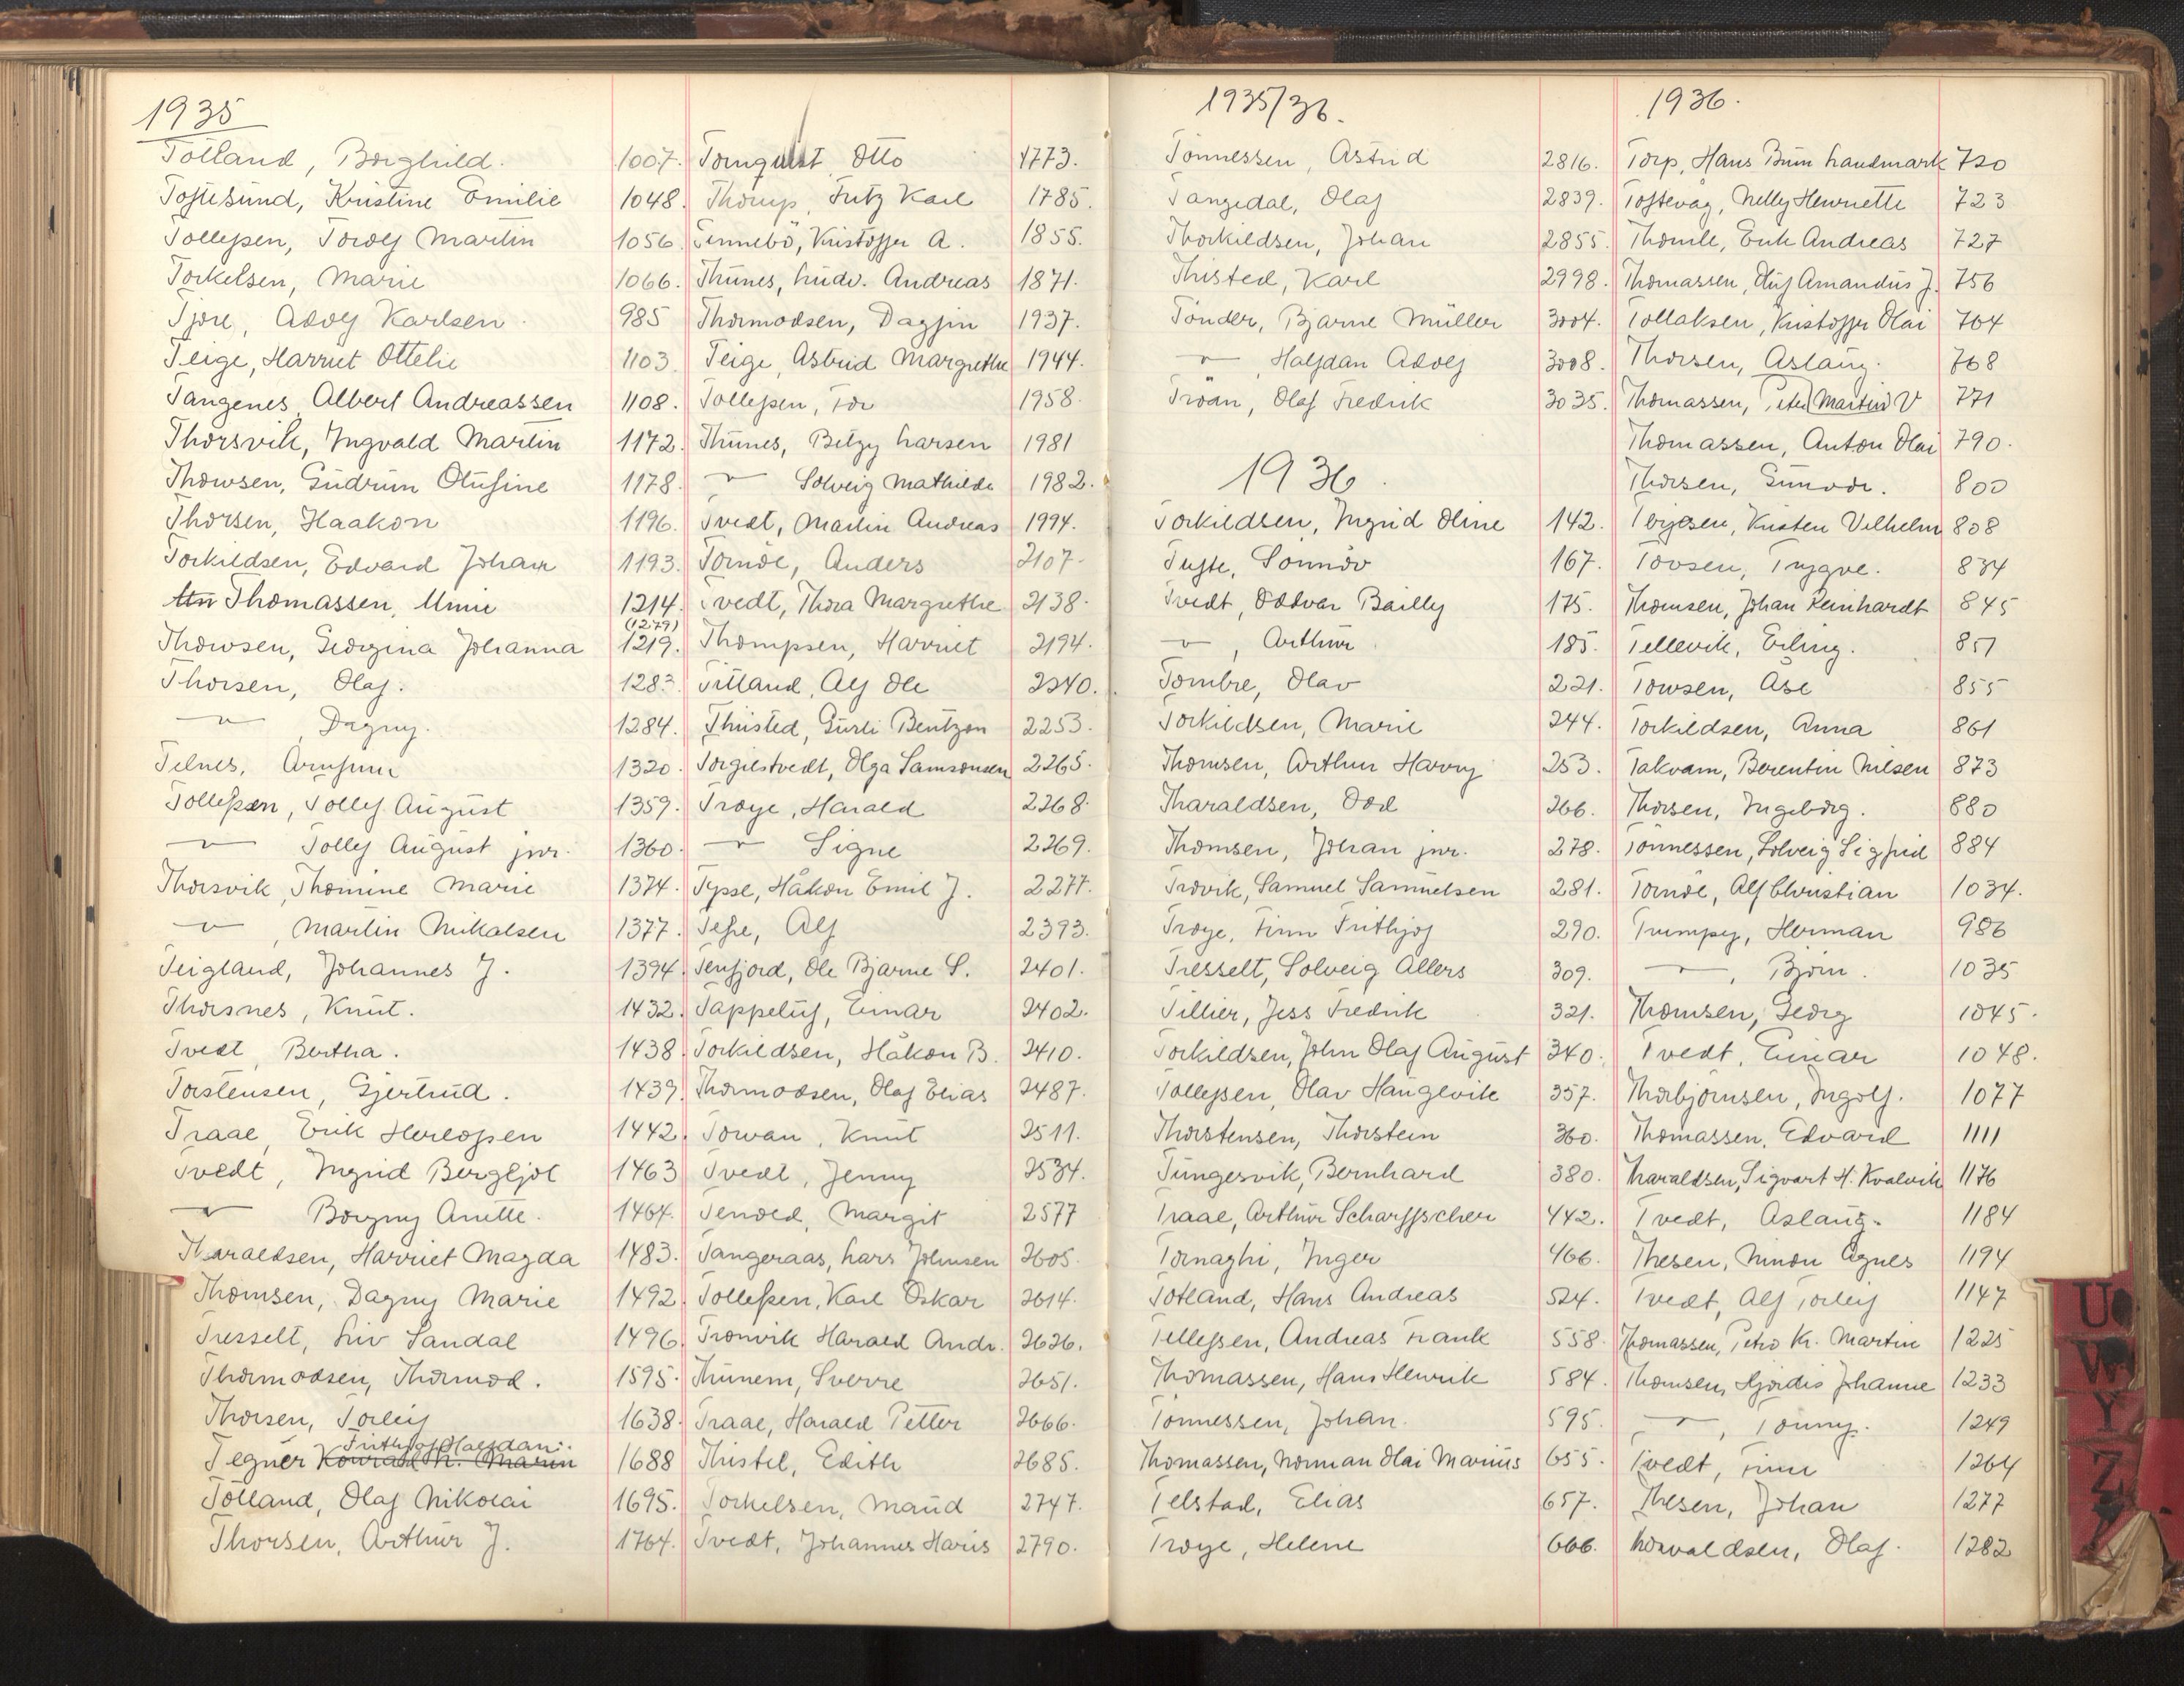 1935
Totland, Borghild. 1007.
Toftesund, Kristine Emilie 1048.
Tollefsen, Torolf Martin 1056.
Torkelsen, Marie 1066.
Tjore, Adolf Karlsen 985
Teige, Harriet Ottelie 1103
Tangenes Albert Andreassen 1108.
Thorsvik, Ingvald Martin 1172.
Thowsen, Gudrun Olufine 1178.
Thorsen, Haakon 1196.
Torkildsen, Edvard Johan 1193.
Thomassen, 1214.
(1279)
Thowsen, Georgina Johanna 1219.
Thorsen, Olaf. 1283
" Dagny. 1284.
Telnes, Arnfinn 1320.
Tollefsen, Tollef August 1359.
" Tollef August jnr. 1360.
Thorsvik, Thomine Marie 1374.
" , Martin Mikalsen 1377.
Teigland, Johannes J. 1394.
Thorsnes, Knut. 1432.
Tvedt, Bertha. 1438.
Torstensen, Gjertrud. 1439.
Traae, Erik Herlofsen 1442.
Tvedt, Ingrid Bergljot 1463
" Borgny Anette. 1464.
Tharaldsen, Harriet Magda 1483.
Thomsen, Dagny Marie 1492.
Tresselt, Liv Sandal 1496.
Thormodsen, Thormod. 1595.
Thorsen, Torleif 1638.
Frithjof Halfdan.
Tegner 1688
Totland, Olaf Nikolai 1695.
Thorsen, Arthur J. 1764.
Tornquist, Otto 1773.
Thorup, Fritz Karl 1785.
Tennebö, Kristoffer A. 1855.
Thunes, Ludv. Andreas 1871.
Thormodsen, Dagfin 1937.
Teige, Astrid Margrethe 1944.
Tollefsen, Tor 1958.
Thunes, Betzy Larsen 1981
" Solveig Mathilde 1982.
Tvedt, Martin Andreas 1994.
Torndle, Anders 2107.
Tvedt, Thora Margrethe 2138.
Thompsen, Harriet 2194.
Titland, Alf Ole 2240.
Thiisted, Gurli Bentzon 2253.
Torgilstvedt, Olga Samsonsen 2265.
Troye, Harald 2268.
" Signe 2269.
Tysse, Håkon Emil J. 2277.
Tefre, Alf 2393.
Tenfjord, Ole Bjarne S. 2401.
Tappeluf, Einar 2402.
Torkildsen, Håkon B. 2410.
Thormodsen, Olaf Elias 2487.
Torvan, Knut 2511.
Tvedt, Jenny 2534.
Tenold, Margit 2577
Tangeraas, Lars Johnsen 2605.
Tollefsen, Karl Oskar 2614.
Tronvik Harald Andr. 2626.
Thunem, Sverre 2651.
Traae, Harald Petter 2666.
Thistel, Edith 2685.
Torkelsen, Maud 2747.
Tvedt, Johannes Haris 2790.
1935/36.
Tönnessen, Astrid 2816.
Tangedal, Olaf 2839.
Thorkildsen, Johan 2855.
Thisted, Karl 2998.
Tönder, Bjarne Müller 3004.
" , Halfdan Adolf 3008.
Troan, Olaf Fredrik 3035.
1936
Torkildsen, Ingrid Oline 142.
Tufte, Sonnöv 167.
Tvedt, Oddvar Bailly 175.
" , Arthur 185.
Tombre, Olav 221.
Torkildsen, Marie 244.
Thomsen, Arthur Harry 253.
Tharaldsen, Odd 266.
Thomsen, Johan jnr. 278.
Trovik, Samuel Samuelsen 281.
Troye, Finn Frithjof 290.
Tresselt, Solveig Allers 309.
Tillier, Jess Fredrik 321.
Torkildsen, John Olaf August 340.
Tollefsen, Olav Haugevik 357.
Thorstensen, Thorstein 360.
Tungesvik, Bernhard 380.
Traae, Arthur Scharffscher 442.
Tornaghi, Inger 466.
Totland, Hans Andreas 524.
Tellefsen, Andreas Frank 558.
Thomassen, Hans Henrik 584.
Tönnessen, Johan. 595.
Thomassen, Norman Olai Marius 655.
Telstad, Elias 657.
Troye, Helene 666.
1936.
Torp, Hans Landmark 720
Toftevåg, Nelly Henriette 723
Thomle, Erik Andreas 727
Thomassen, Oluf Amandus J. 756
Tollaksen, Kristoffer Olai 764
Thorsen, Aslaug. 768
Thomassen, Peter Martin V 771
Thomassen, Anton Olai 790.
Thorsen, Gunvor. 800
Terjesen, Kristen Vilhelm 808
Tovsen, Trygve. 834
Thomsen, Johan Reinhardt 845
Tellevik, Erling. 851
Towsen, Åse 855
Torkildsen, Anna 861
Takvam, Berentin Nilsen 873
Thorsen, Ingeborg. 880
Tönnessen, Solveig Sigfrid 884
Torndle, Alf Christian 1034.
Trumpy, Herman 986
" , Björn. 1035
Thomsen, Georg 1045.
Tvedt, Einar 1048.
Thorbjörnsen, Ingolf. 1077
Thomassen, Edvard 1111
Tharaldsen, Sigvart H. Kvalvik 1176
Tvedt, Aslaug. 1184
Thesen, Ninon Agnes 1194
Tvedt, Alf Torleif 1147
Thomassen, Petro Kr. Martin 1225
Thomsen, Hjördis Johanne 1233
" , Tonny. 1249
Tvedt, Finn 1264
Thesen, Johan 1277
Thorvaldsen, Olaf. 1282
U
W
Y
Z